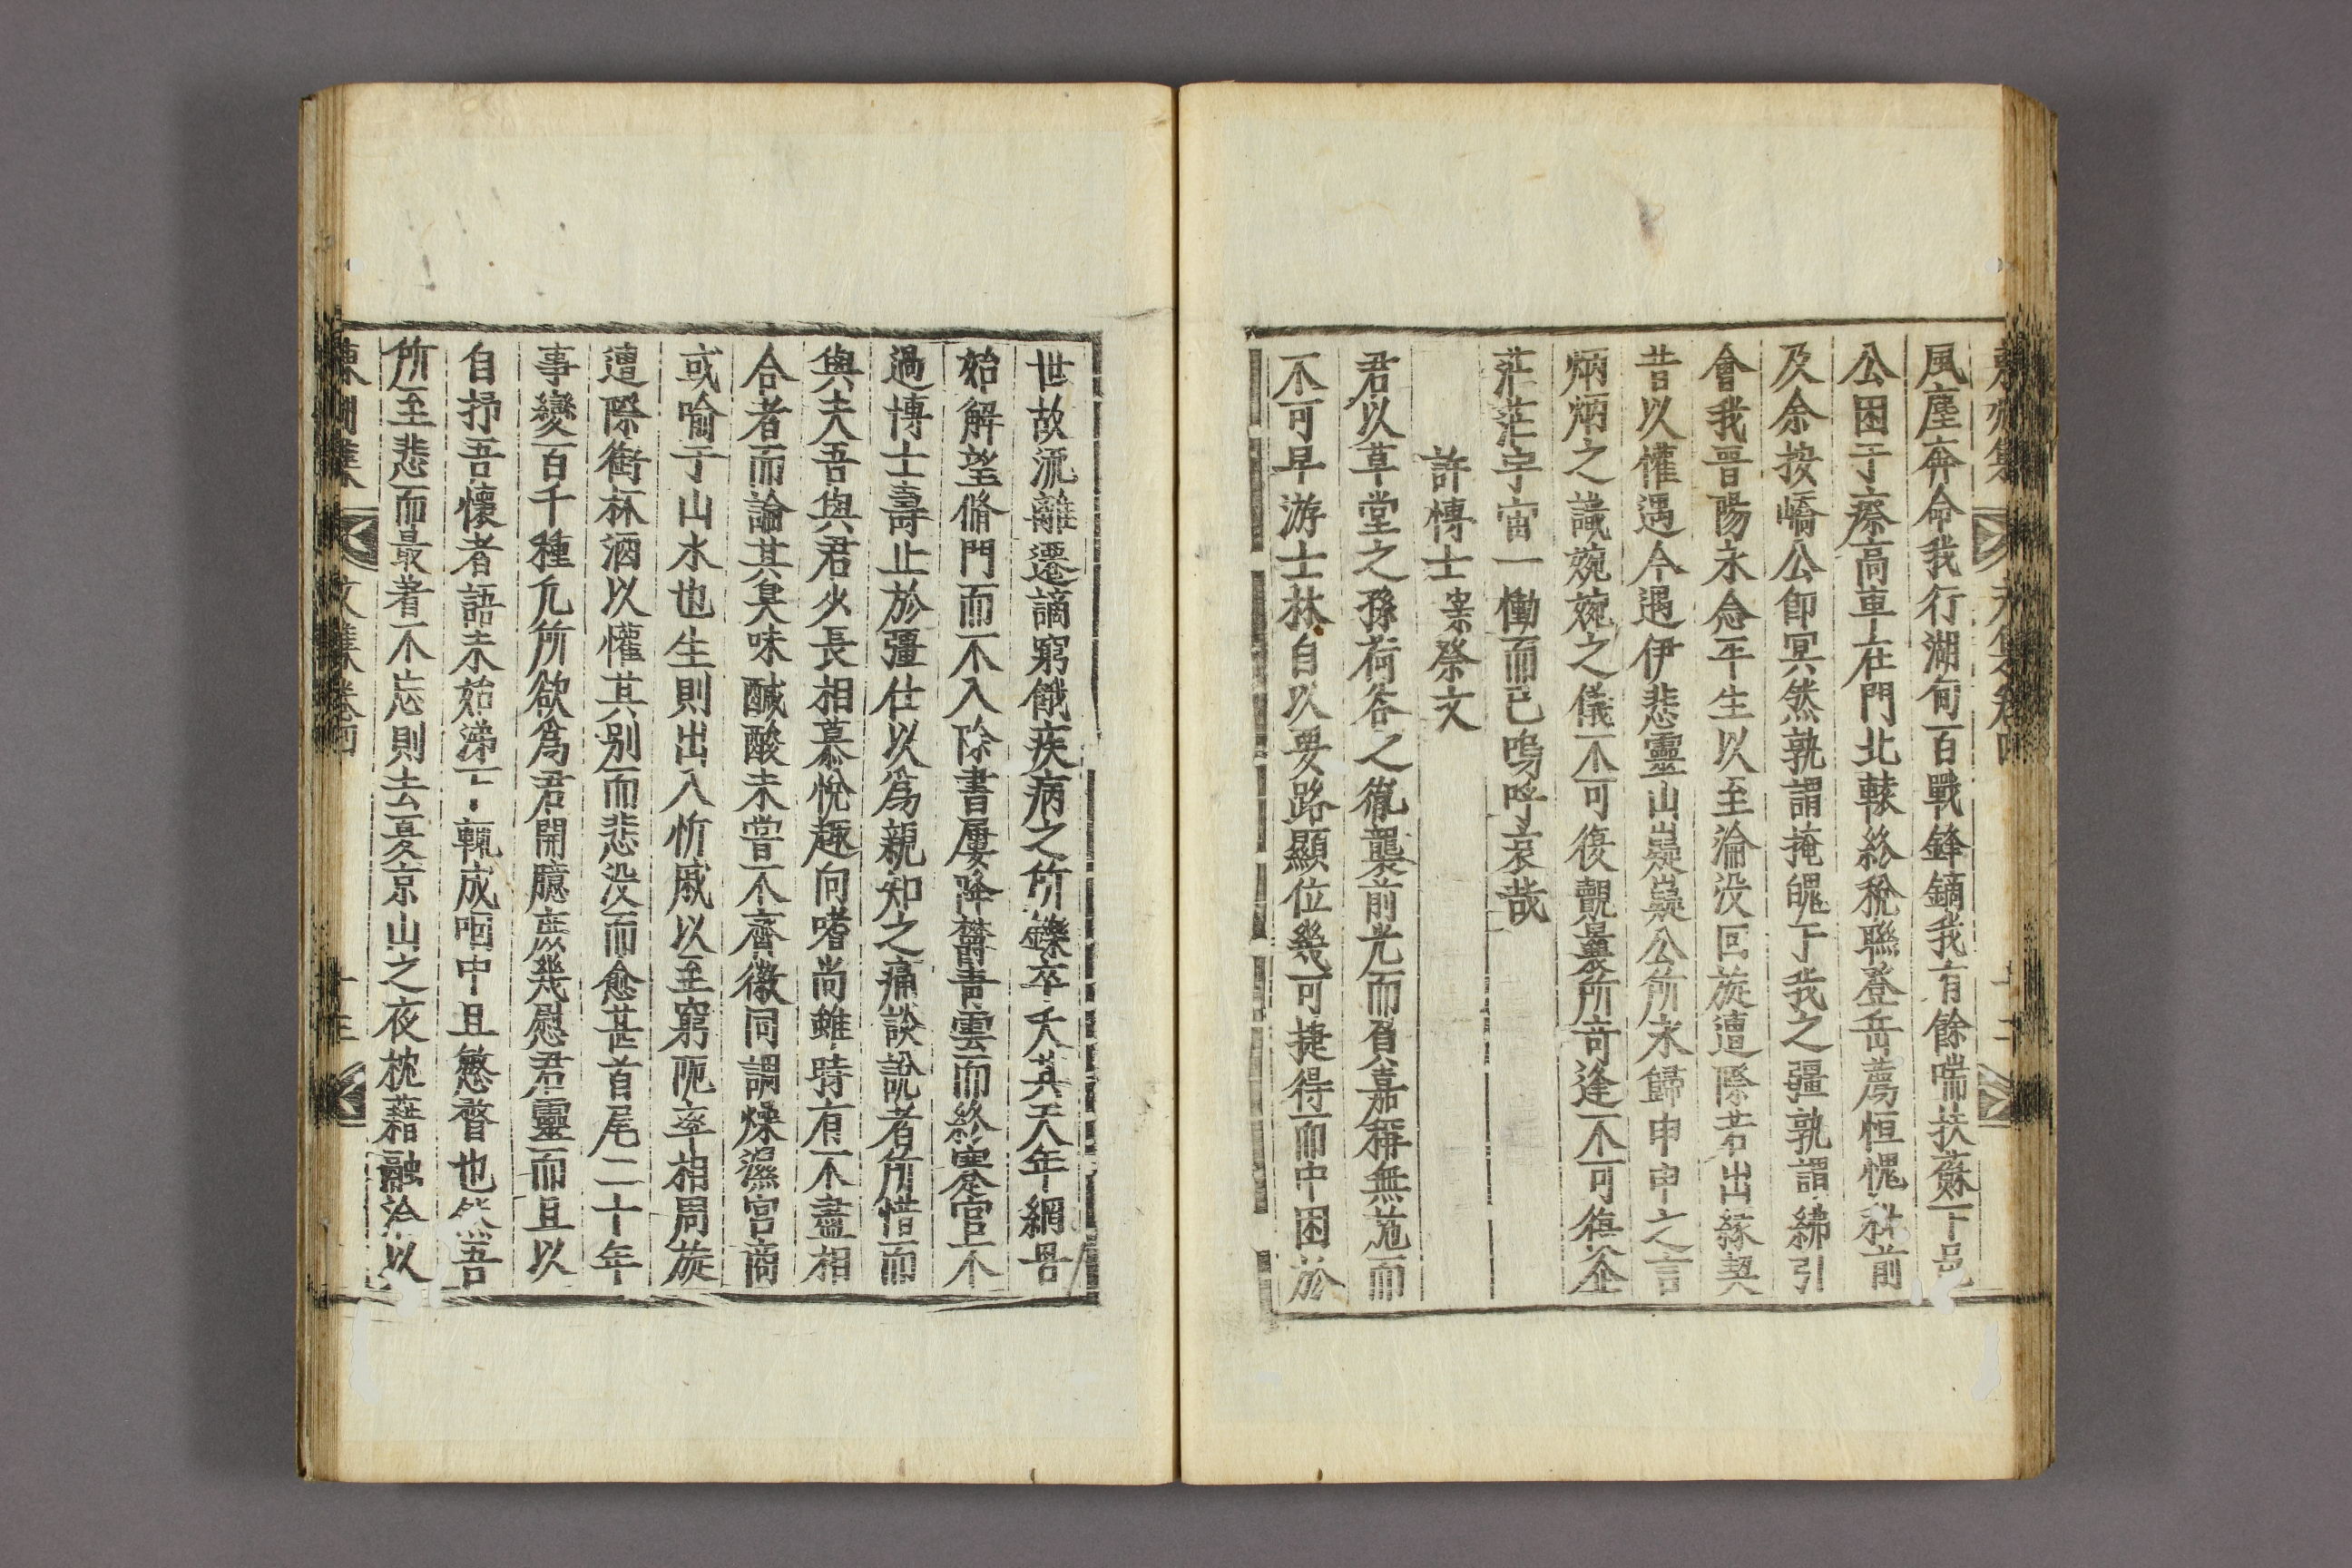 風塵奔命我行湖甸百戰鋒鏑我有餘喘扶蘇下邑
公困于瘵高車在門北轅綌稅聯登岳薦恒愧秋前
及余按嶠公卽冥然孰謂掩髿于我之疆孰謂紼引
會我晉陽永念平生以至淪没回旋遭際若出緣契
昔以懽遇今遇伊悲靈山嶷嶷公所永歸申申之言
炳炳之識婉婉之儀不可復覿曩所奇逢不可復益
茫茫宇宙一慟而已嗚呼哀哉
許博士寀祭文
君以草堂之孫荷谷之胤襲前光而負嘉稱無施而
不可早游士林自以要路顯位幾可捷得而中困於
世故流離遷謫窮餓疾病之所鑠卒夭其天年網罟
始解望脩門而不入除書屢降欝靑雲而終寒官不
過博士壽止於彊仕以爲親知之痛談說者所惜而
與夫吾與君少長相慕悅趣向嗜尚雖時有不盡相
合者而論其臭味醎酸未嘗不齊徽同謂燥濕宮商
或喻于山水也生則出入忻戚以至窮阨率相周旋
遭際銜杯酒以懽其别而悲没而愈甚首尾二十年
事變百千種凡所欲爲君開臆庶幾慰君靈而且以
自抒吾懷者語未始涕下輒成咽中且慗瞀也然吾
所至悲而最著不忘則去夏京山之夜枕藉融洽以
文集卷四